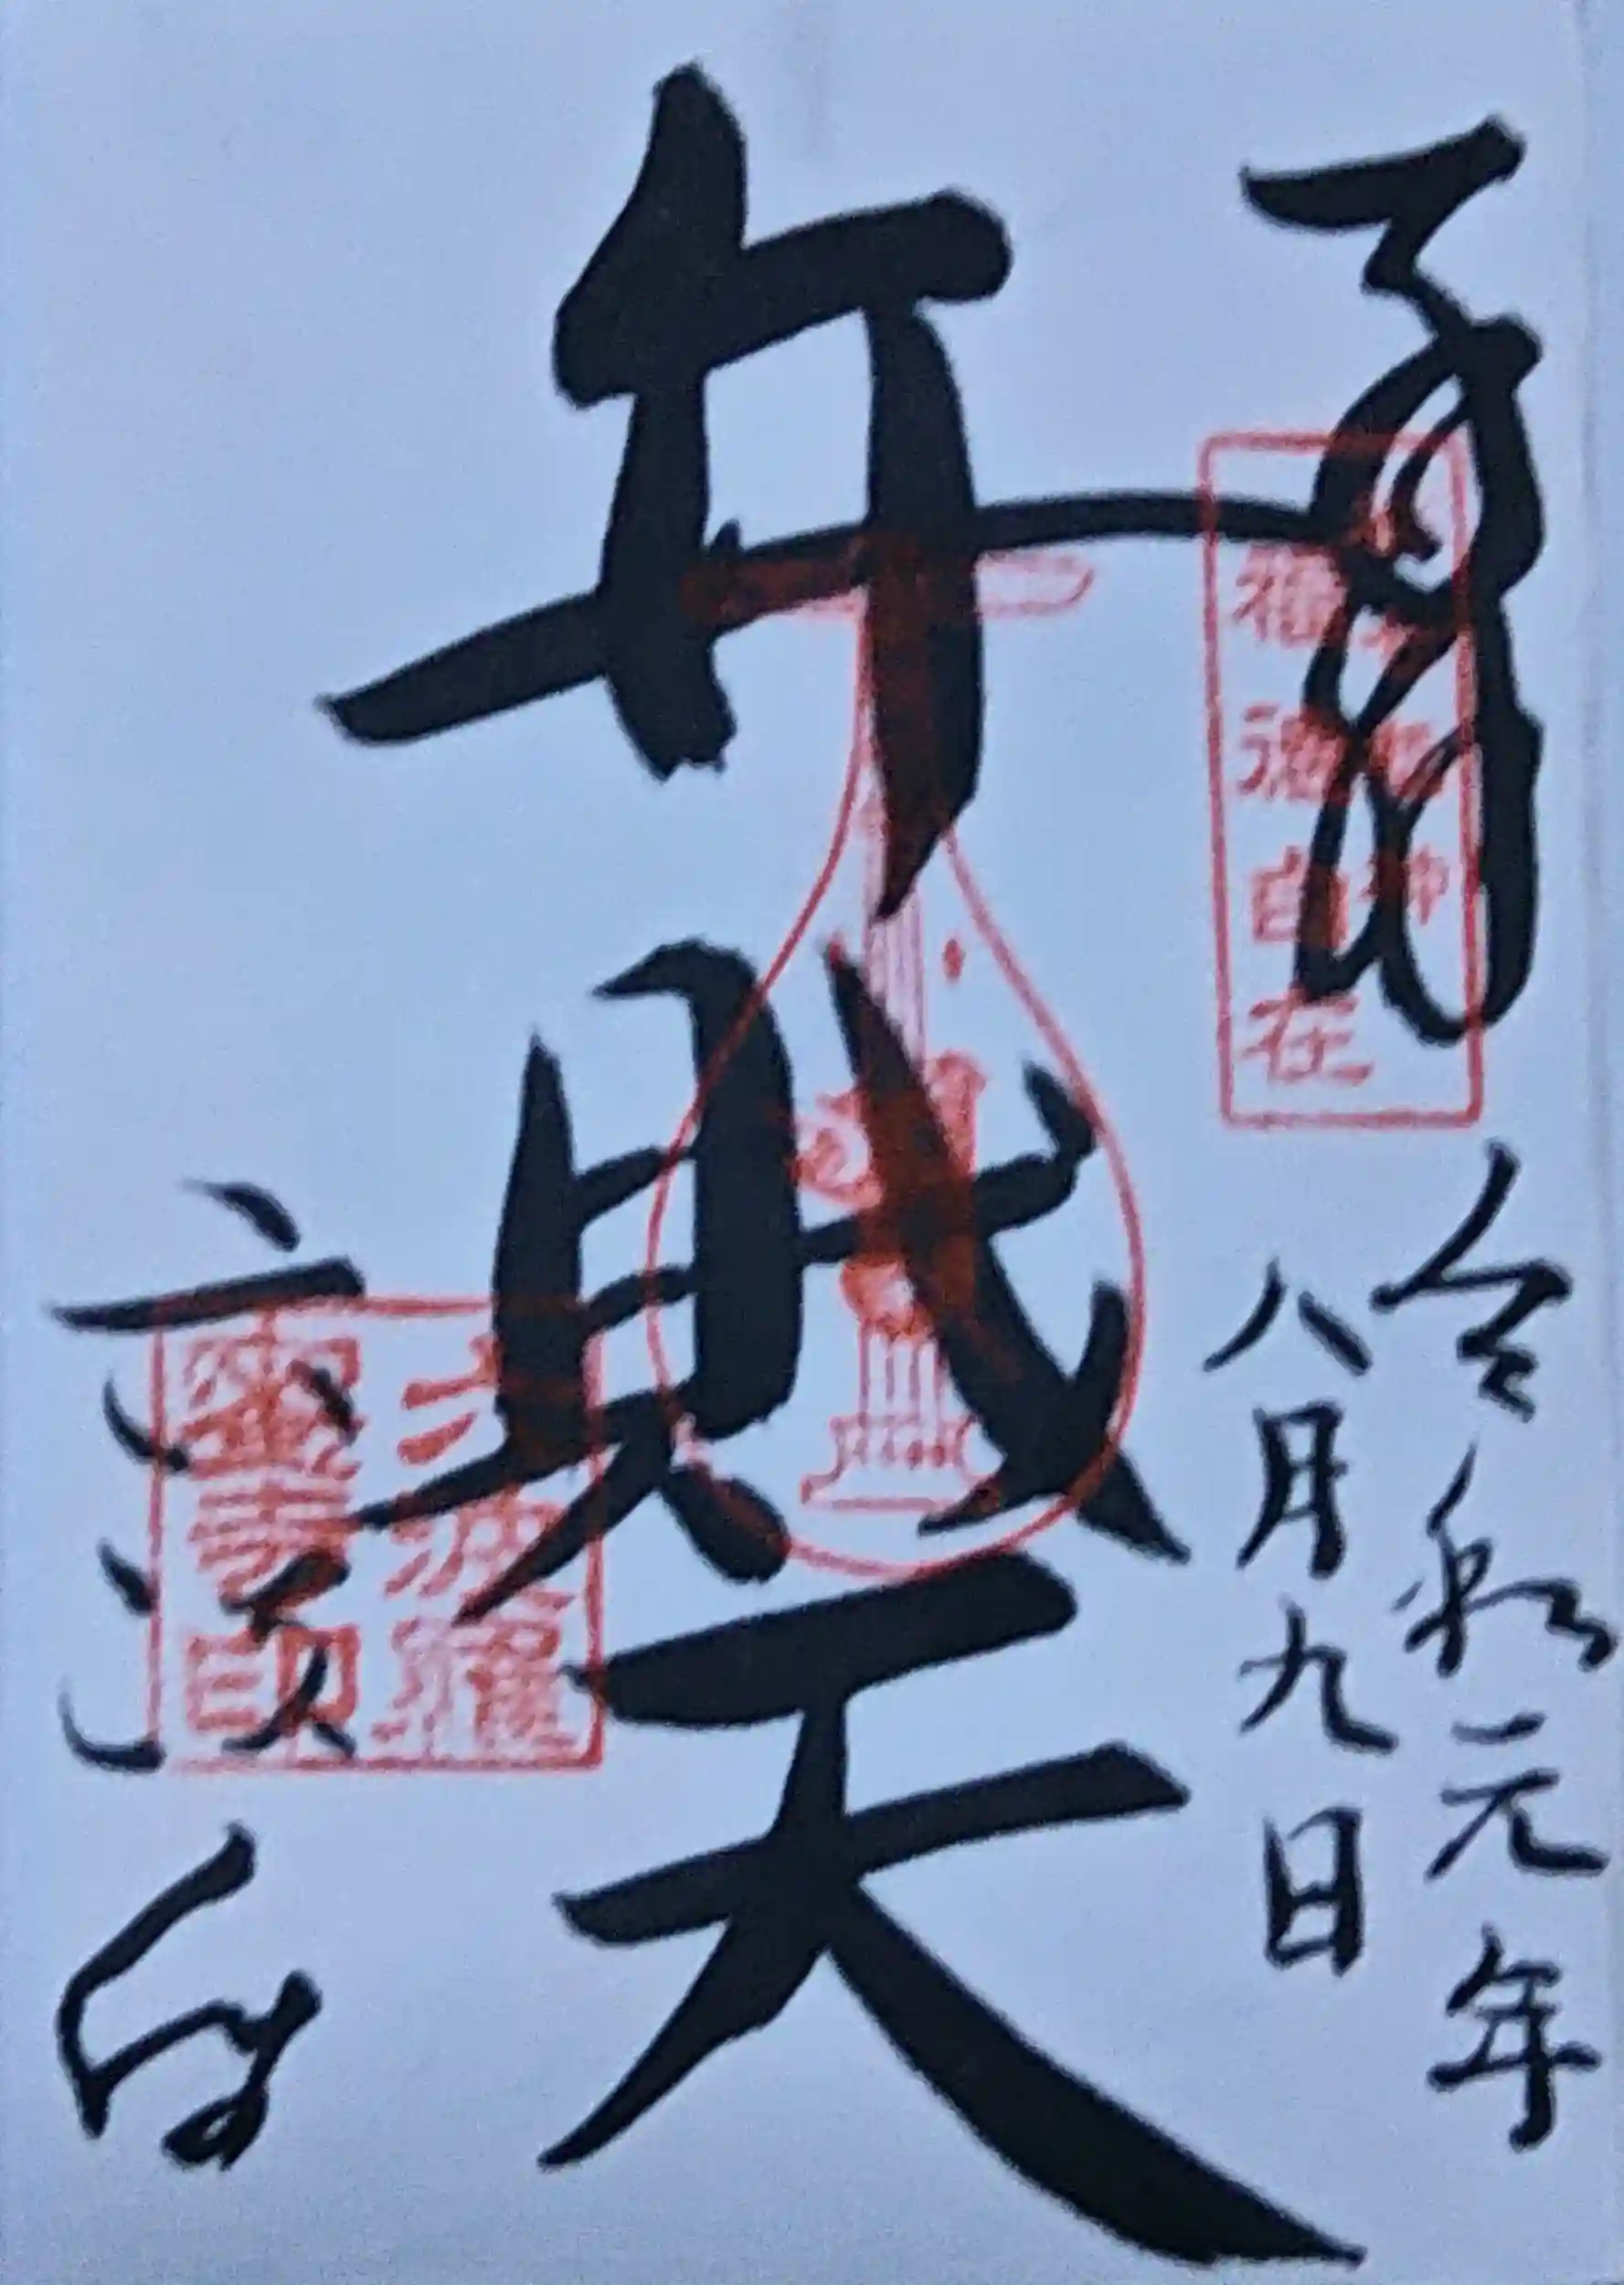 奉拝
福徳自在
令和元年
八月九日
弁財天
六波羅
蜜寺印
六波羅蜜寺